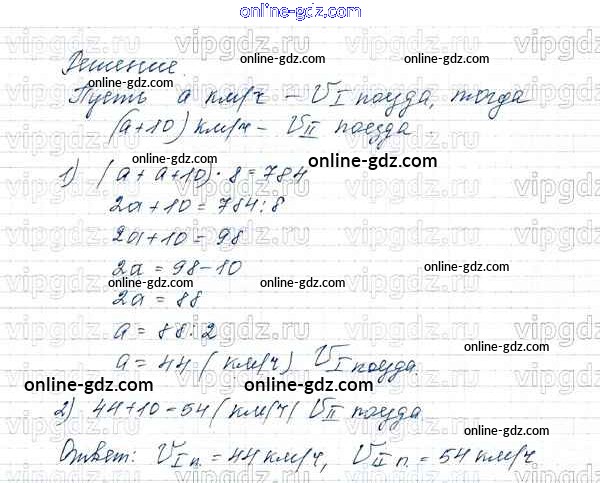 online-gdz.com
Решение.
Пусть а км/ч – V I поезда, тогда
(а+10) км/ч – V II поезда.
online-gdz.com
1) (а + а+10) · 8 = 784
online-gdz.com
2а + 10 = 784 : 8
online-gdz.com
2а+10 = 98
online-gdz.com
2а = 98-10
online-gdz.com
online-gdz.com
2а = 88
а = 88 : 2
online-gdz.com
а = 44 ( км/ч) V I поезда.
online-gdz.com
online-gdz.com
online-gdz.com
2) 44+10=54 ( км/ч( V II поезда
online-gdz.com
online-gdz.com
Ответ: V I п. = 44 км/ч, V II п. = 54 км/ч
online-gdz.com
vipgdz.ru